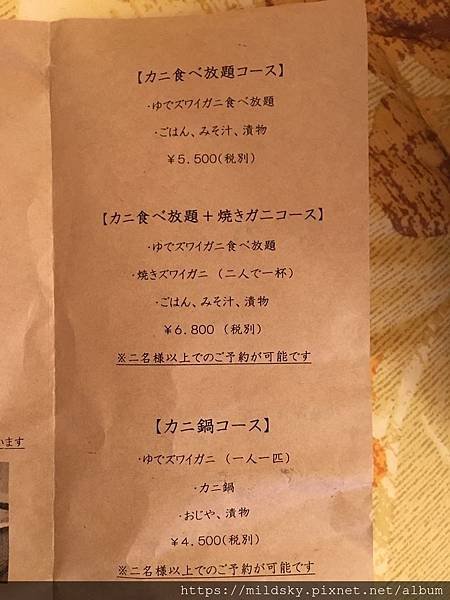 【カニ食べ放題コース】
・ゆでズワイガニ食べ放題
・ごはん、みそ汁、漬物
￥5.500(税別)
【カニ食べ放題＋焼きガニコース】
・ゆでズワイガニ食べ放題
・焼きズワイガニ (二人で一杯)
・ごはん、みそ汁、漬物
￥6.800 (税別)
※二名様以上でのご予約が可能です
【カニ鍋コース】
・ゆでズワイガニ (一人一匹)
・カニ鍋
・おじや、漬物
￥4.500(税別)
※二名様以上でのご予約が可能です
います
https://mildsky.pixnet.net/album